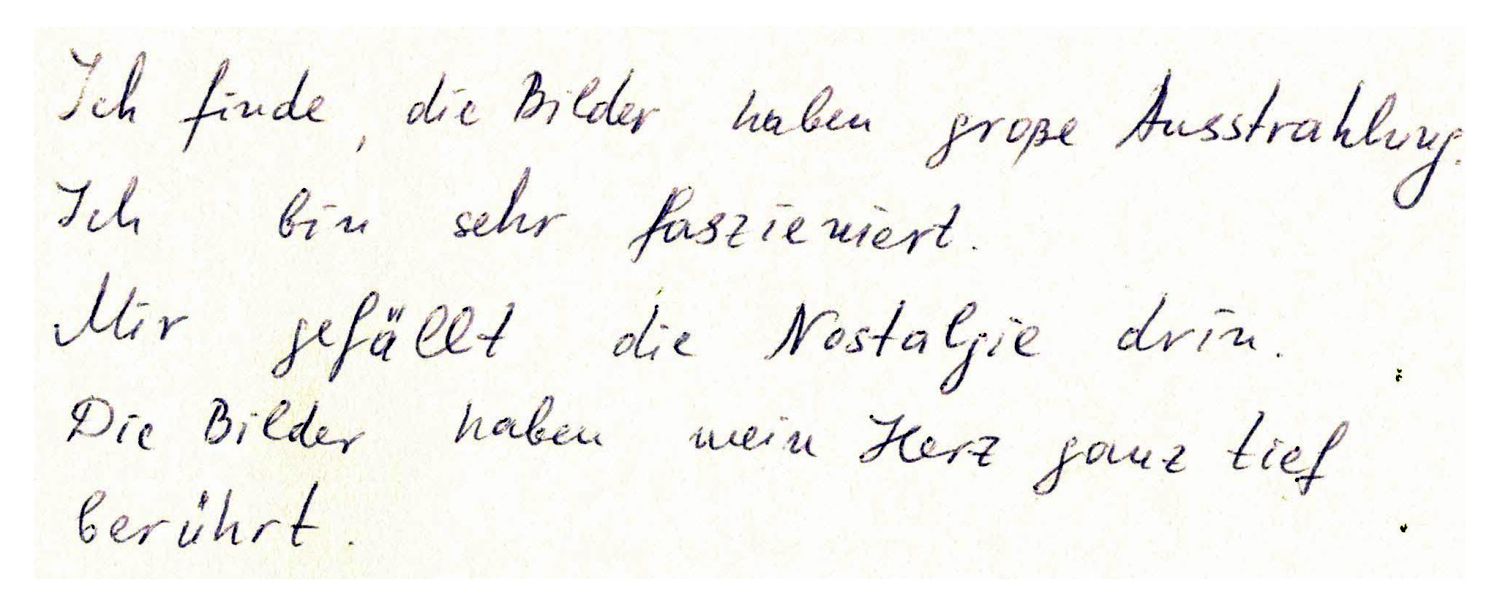 Ich finde, die Bilder haben große Ausstrahlung.
Ich bin sehr faszieniert.
Mir gefällt die Nostalgie drin.
Die Bilder haben mein Herz ganz tief
berührt.